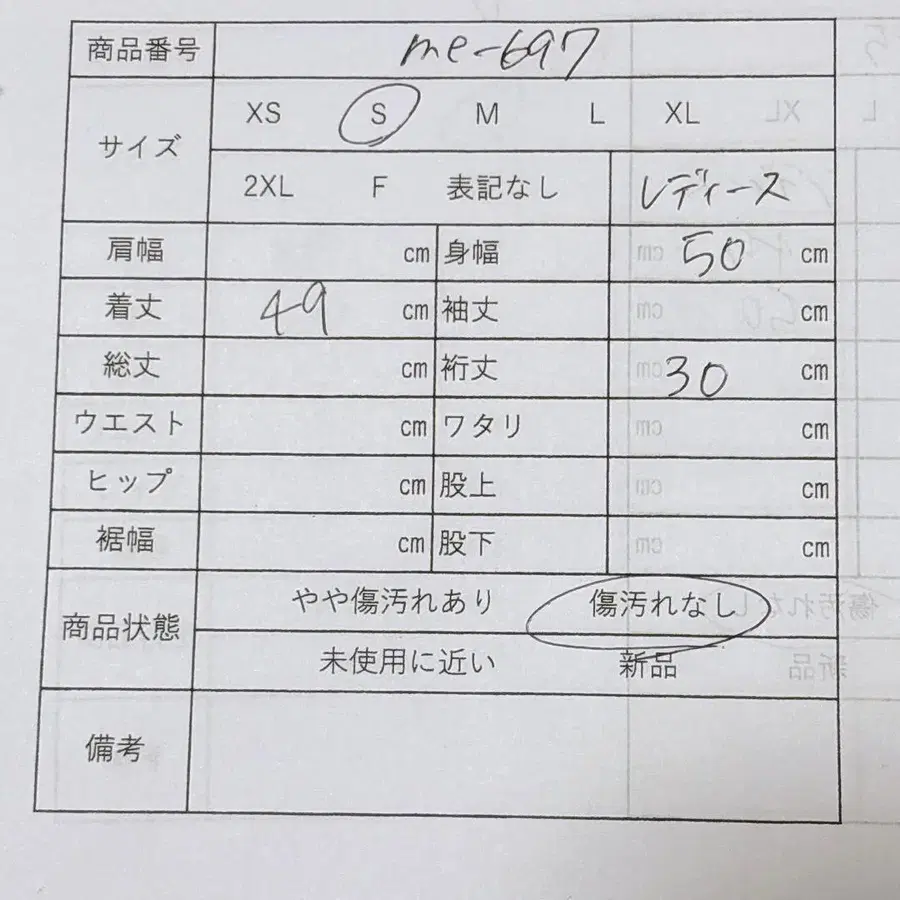 商品番号 me-697
サイズ XS S M L XL
2XL F 表記なし レディース
肩幅 cm 身幅 50 cm
着丈 49 cm 袖丈 cm
総丈 cm 裄丈 30 cm
ウエスト cm ワタリ cm
ヒップ cm 股上 cm
裾幅 cm 股下 cm
商品状態 やや傷汚れあり 傷汚れなし
未使用に近い 新品
備考